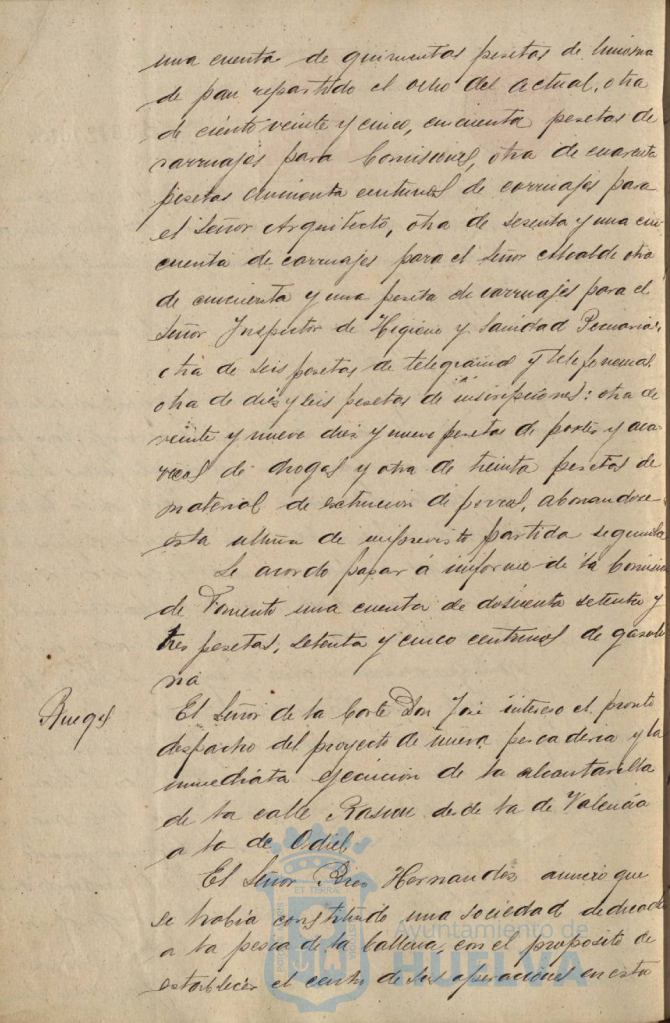 una cuenta de quinientas pesetas de limosna
de pan repartido el ocho del actual, otra
de ciento veinte y cinco, cincuenta pesetas de
carruajes para Comisiones, otra de cuarenta
pesetas cincuenta centimos de carruajes para
el Señor Arquitecto, otra de sesenta y una cin
cuenta de carruajes para el Señor Alcalde otra
de cincuenta y una peseta de carruajes para el
Señor Inspector de Higiene y Sanidad Pecuarias,
otra de seis pesetas de telegramas y telefonemas
otra de diez y seis pesetas de inscripciones: otra de
veinte y nueve diez y nueve pesetas de portes y aca
rreos de drogas y otra de treinta pesetas de
material de extincion de perros, abonandose
esta ultima de imprevisto partida segunda
Se acordo pasar á informe de la Comision
de Fomento una cuenta de doscienta setenta y
tres pesetas, setenta y cinco centimos de gasoli
na
Ruegos
El Señor de la Corte Don José intereso el pronto
despacho del proyecto de nueva pescaderia y la
inmediata ejecucion de la alcantarilla
de la calle Rascon desde la de Valencia
a la de Odiel
El Señor Hernandez anuncio que
se habia constituido una sociedad dedicada
a la pesca de la ballena, con el proposito de
establecer el centro de sus operaciones en esta
ET TERRA
Ayuntamiento de
HUELVA